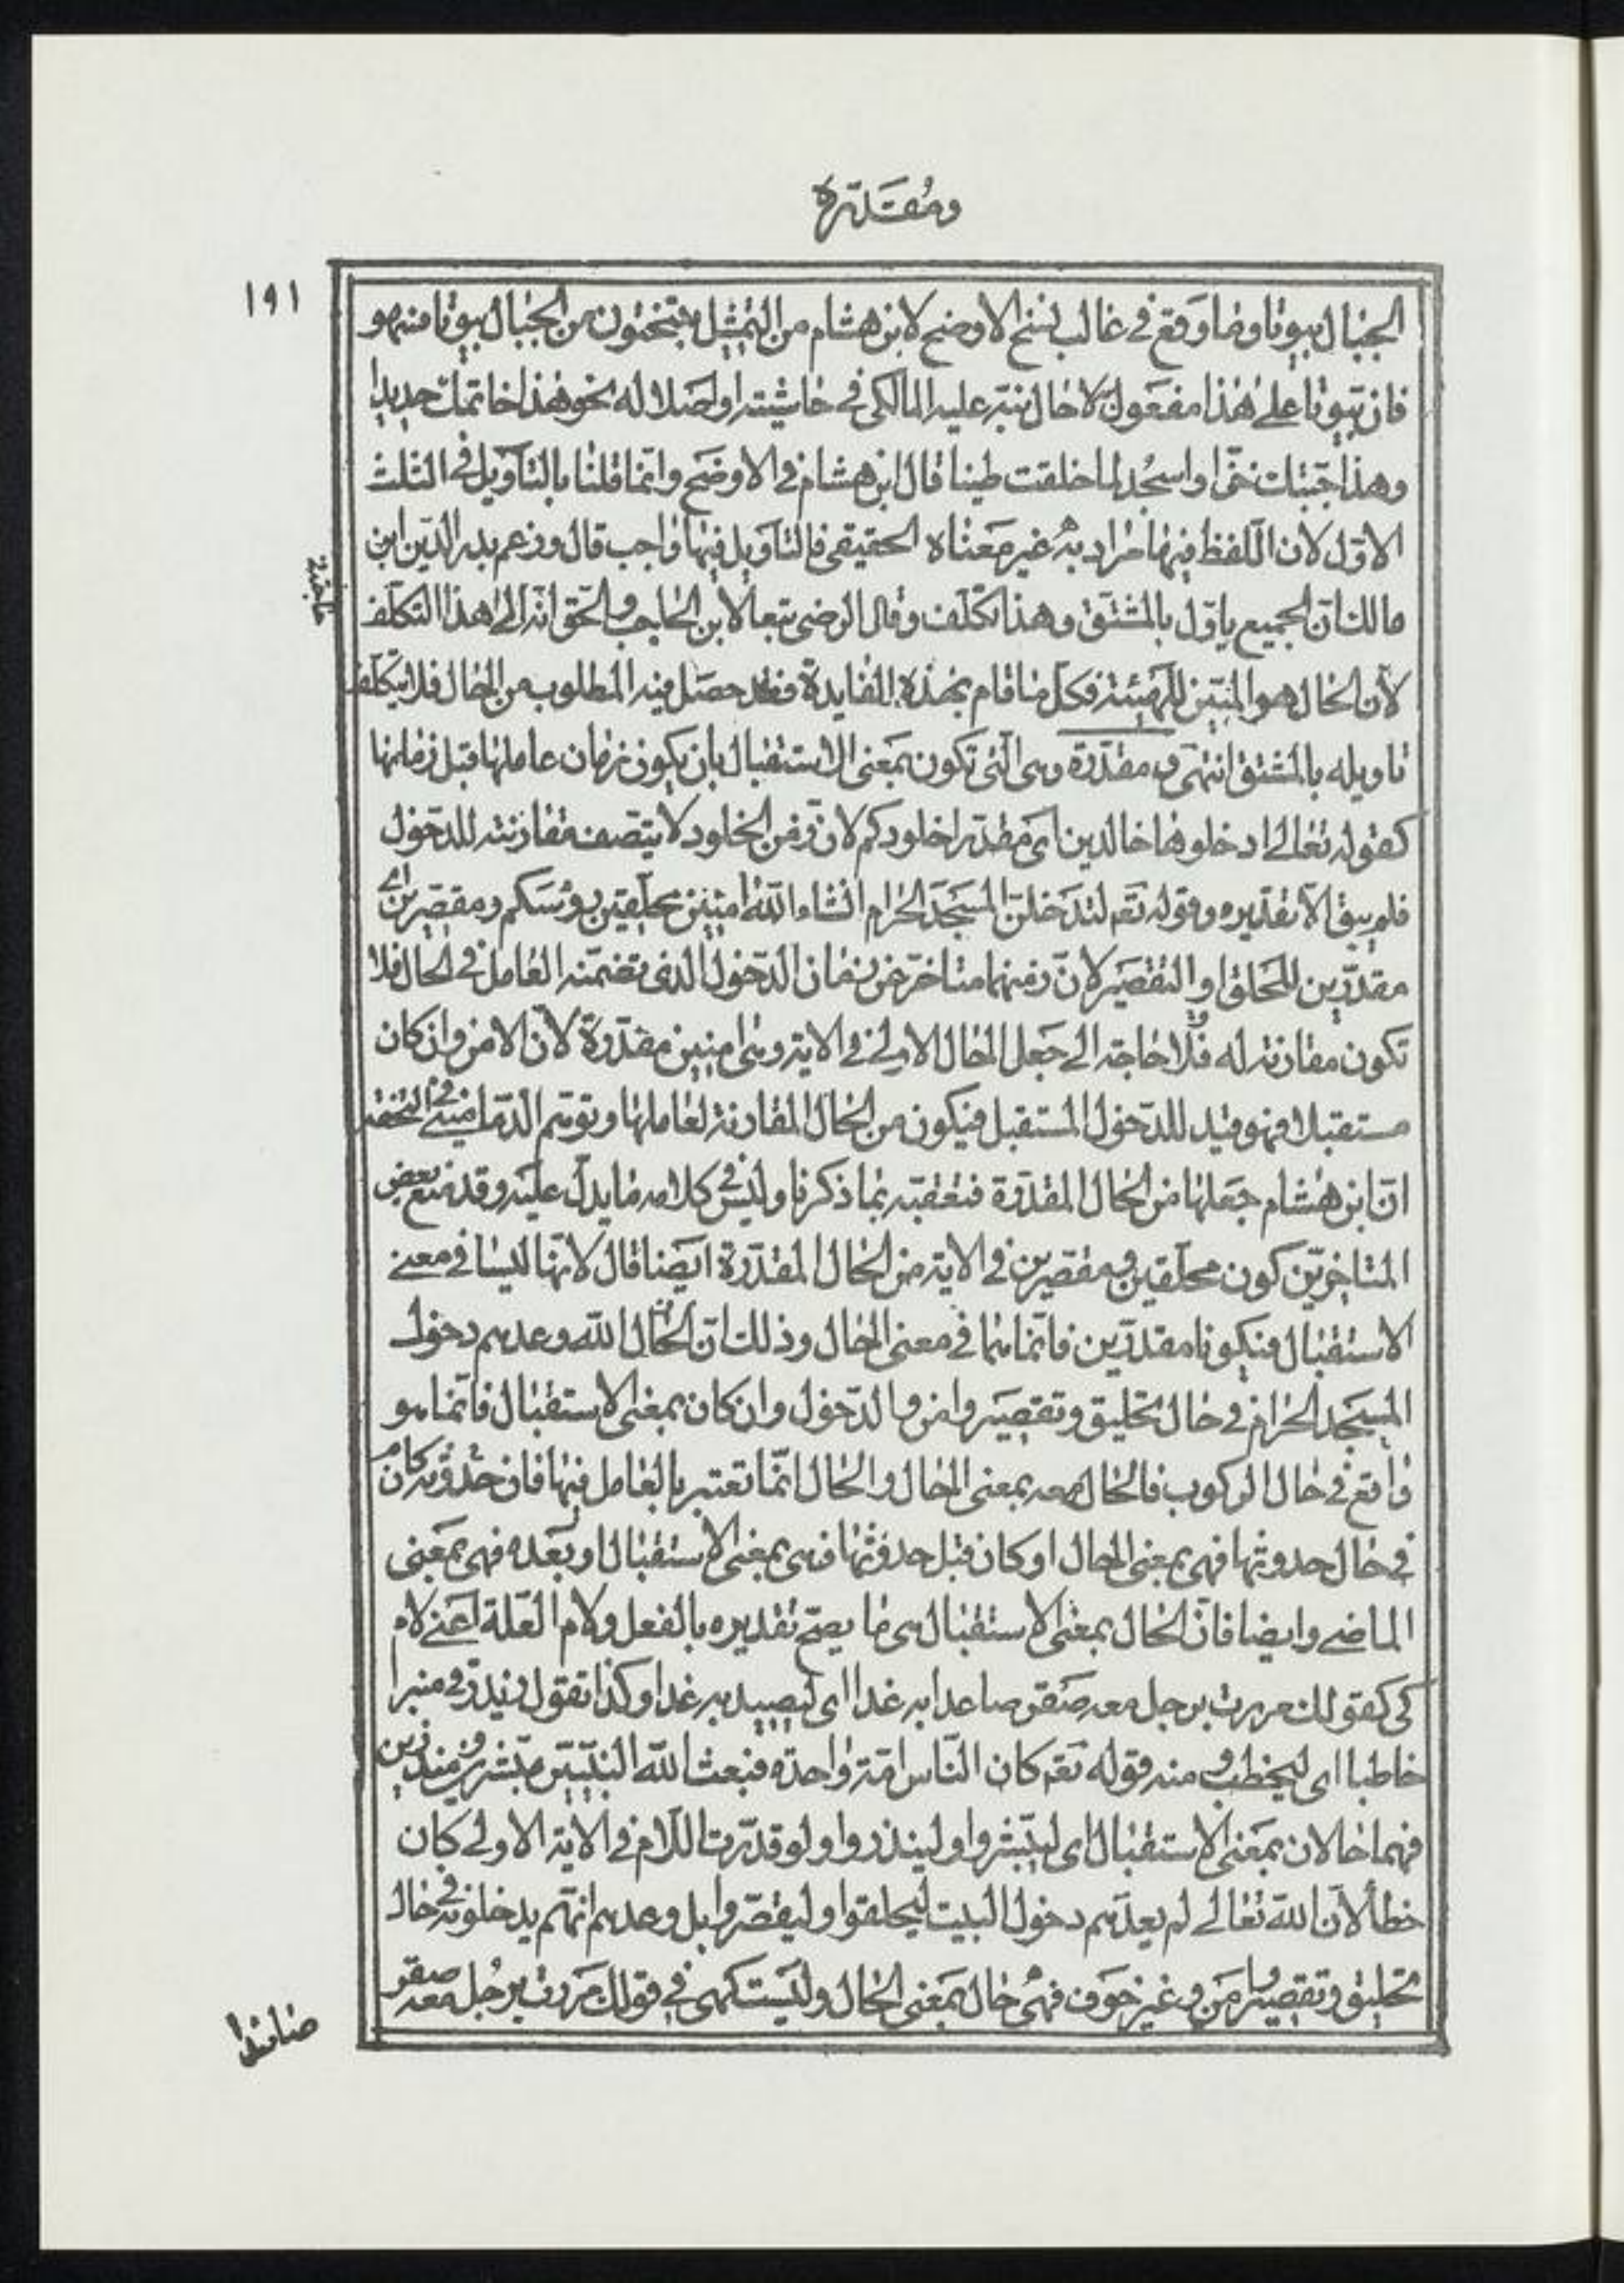 ومُقَدّرة
١٩١
الجبال بيوتا وما وقع في غالب نسخ الاوضح لابن هشام من التمثيل بتتخذون من الجبال بيوتا فسهو
فان بيوتا على هذا مفعول لا حال نبّه عليه المالكي في حاشيته او اصلا له نحو هذا خاتمك حديدا
وهذا جبّتك خزّا واسجُد لما خلقت طينا قال ابن هشام في الاوضح وانّما قلنا بالتأويل في الثلث
الاوّل لان اللفظ فيها مراد به غير معناه الحقيقي فالتأويل فيها واجب قال وزعم بدر الدّين ابن
مالك انّ الجميع ياوّل بالمشتق وهذا تكلّف وقال الرضي تبعا لابن الحاجب والحق انّه لا حاجة الى هذا التكلّف
لأن الحال هو المبيّن للهيئة فكل ما قام بهذه الفايدة فقد حصل فيه المطلوب من الحال فلا يتكلّف
تاويله بالمشتق انتهى ومقدّرة وهي الّتي تكون بمعنى الاستقبال بان يكون زمان عاملها قبل زمانها
كقوله تعالى ادخلوها خالدين اى مقدّرا خلودكم لان زمن الخلود لا يتّصف مقارنته للدخول
فلم يبق الا تقديره وقوله تعم لتدخلنّ المسجد الحرام انشاء الله آمنين محلّقين رؤسكم ومقصّرين اى
مقدّرين للحلق او التقصير لانّ زمنهما متاخّر عن زمان الدّخول الذي تضمّنه العامل في الحال فلا
تكون مقارنة له فلا حاجة الى جعل الحال الاولى في الآية وهى آمنين مقدّرة لأنّ الامن وان كان
مستقبلا فهو قيد للدخول المستقبل فيكون من الحال المقارنة لعاملها وتوهّم الدّمامينى في التحفة
انّ ابن هشام جعلها من الحال المقدّرة فتعقّبه بما ذكرنا وليس في كلامه ما يدلّ عليه وقد منع بعض
المتاخّرين كون محلّقين ومقصّرين في الآية من الحال المقدّرة ايضا قال لانّها ليسا في معنى
الاستقبال فيكونا مقدّرين فانّما هما في معنى الحال وذلك انّ الحال الله وعدهم دخول
المسجد الحرام في حال تحليق وتقصير وامن والدّخول وان كان بمعنى الاستقبال فانّما هو
واقع في حال الركوب فالحال معه بمعنى الحال والحال انّما تعتبر بالعامل فيها فان حدوثه كان
في حال حدوثها فهي بمعنى الحال او كان قبل حدوثها فهى بمعنى الاستقبال او بعده فهى بمعنى
الماضى وايضا فانّ الحال بمعنى الاستقبال هى ما يصحّ تقديره بالفعل ولام العلّة اعنى لام
كي كقولك مررت برجل معه صقر صائدا به غدا اى ليصيد به غدا وكذا تقول زيد في منبر
خاطبا اى ليخطب ومنه قوله تعم كان النّاس امّة واحدة فبعث الله النبيّين مبشّرين ومنذرين
فهما حالان بمعنى الاستقبال اى ليبشّروا ولينذروا ولو قدّرت اللّام في الآية الاولى كان
خطأ لانّ الله تعالى لم يعدهم دخول البيت ليحلقوا وليقصّروا بل وعدهم انّهم يدخلونه في حال
تحليق وتقصير وامن وغير خوف فهى حال بمعنى الحال وليست كهى في قولك مررت برجل معه صقر
صائدا